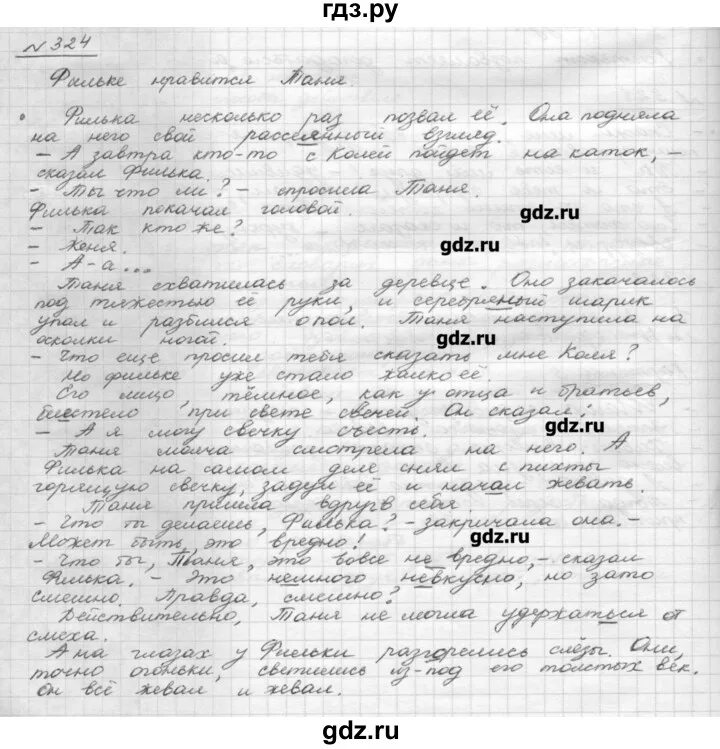 гдз.ру
№ 324
Фильке нравится Таня.
Филька несколько раз позвал её. Она подняла
на него свой рассеянный взгляд.
– А завтра кто-то с Колей пойдет на каток, –
сказал Филька.
– Ты что ли? – спросила Таня.
Филька покачал головой.
gdz.ru
– Так кто же?
– Женя.
gdz.ru
– А-а...
Таня схватилась за деревце. Оно закачалось
под тяжестью её руки, и серебряный шарик
упал и разбился о пол. Таня наступила на
осколки ногой.
gdz.ru
– Что еще просил тебя сказать мне Коля?
Но Фильке уже стало жалко её.
Его лицо, тёмное, как у отца и братьев,
блестело при свете свечей. Он сказал:
– А я могу свечку съесть.
gdz.ru
Таня молча смотрела на него. А
Филька на самом деле снял с пихты
горящую свечку, задул её и начал жевать.
Таня пришла вдруг в себя.
gdz.ru
– Что ты делаешь, Филька? – закричала она. –
Может быть, это вредно!
– Что ты, Таня, это вовсе не вредно, – сказал
Филька. – Это немного невкусно, но зато
смешно. Правда, смешно?
Действительно, Таня не могла удержаться от
смеха.
А на глазах у Фильки разгорелись слёзы. Они,
точно огоньки, светились из-под его толстых век.
Он всё жевал и жевал.
gdz.ru
gdz.ru